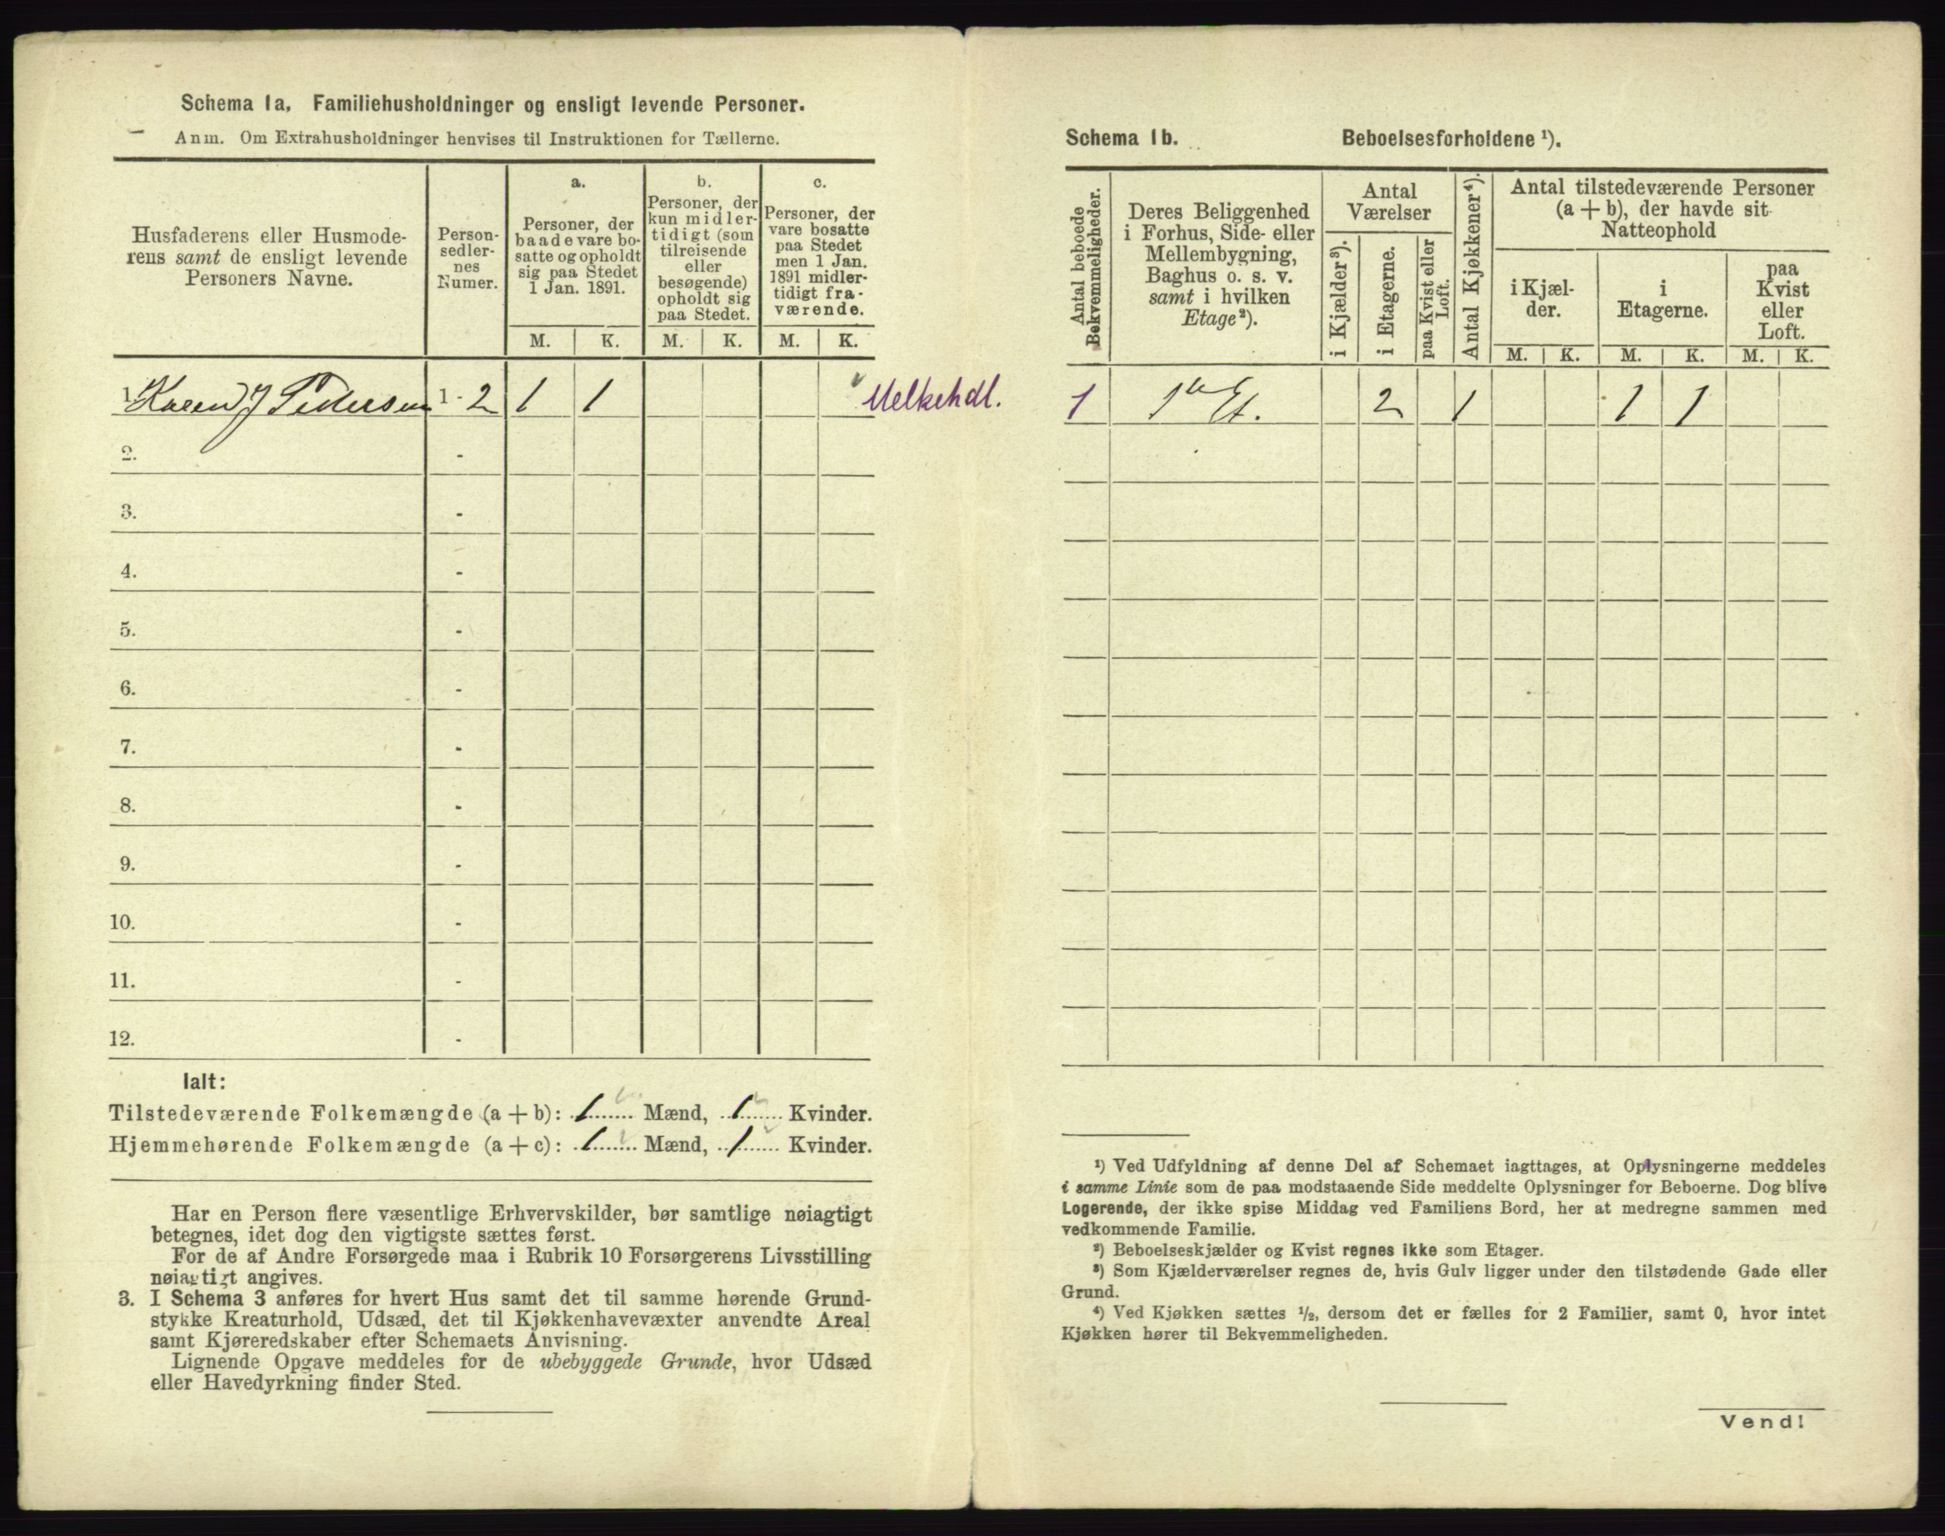 Schema Ia. Familiehusholdninger og ensligt levende Personer.
Anm. Om Extrahusholdninger henvises til Instruktionen for Tællerne.
Husfaderens eller Husmode-
rens samt de ensligt levende
Personers Navne.
Person-
sedler-
nes
Numer.
a.
Personer, der
baade vare bo-
satte og opholdt
sig paa Stedet
1 Jan. 1891.
b.
Personer, der
kun midler-
tidigt (som
tilreisende
eller
besøgende)
opholdt sig
paa Stedet.
c.
Personer, der
vare bosatte
paa Stedet
men 1 Jan.
1891 midler-
tidigt fra-
værende.
M. K. M. K. M. K.
1. Karen J Pedersen 1 - 2 1 1 Melkehdl.
2. -
3. -
4. -
5. -
6. -
7. -
8. -
9. -
10. -
11. -
12. -
Ialt:
Tilstedeværende Folkemængde (a + b): 1 Mænd, 1 Kvinder.
Hjemmehørende Folkemængde (a + c): 1 Mænd, 1 Kvinder.
Har en Person flere væsentlige Erhvervskilder, bør samtlige nøiagtigt
betegnes, idet dog den vigtigste sættes først.
For de af Andre Forsørgede maa i Rubrik 10 Forsørgerens Livsstilling
nøiagtigt angives.
3. I Schema 3 anføres for hvert Hus samt det til samme hørende Grund-
stykke Kreaturhold, Udsæd, det til Kjøkkenhavevæxter anvendte Areal
samt Kjøreredskaber efter Schemaets Anvisning.
Lignende Opgave meddeles for de ubebyggede Grunde, hvor Udsæd
eller Havedyrkning finder Sted.
Schema Ib. Beboelsesforholdene ¹).
Antal beboede
Bekvemmeligheder.
Deres Beliggenhed
i Forhus, Side- eller
Mellembygning,
Baghus o. s. v.
samt i hvilken
Etage²).
Antal
Værelser
i Kjælder³).
i Etagerne.
paa Kvist eller
Loft.
Antal Kjøkkener⁴).
Antal tilstedeværende Personer
(a + b), der havde sit
Natteophold
i Kjæl-
der.
i
Etagerne.
paa
Kvist
eller
Loft.
M. K. M. K. M. K.
1 1ste Et. 2 1 1 1
¹) Ved Udfyldning af denne Del af Schemaet iagttages, at Oplysningerne meddeles
i samme Linie som de paa modstaaende Side meddelte Oplysninger for Beboerne. Dog blive
Logerende, der ikke spise Middag ved Familiens Bord, her at medregne sammen med
vedkommende Familie.
²) Beboelseskjælder og Kvist regnes ikke som Etager.
³) Som Kjælderværelser regnes de, hvis Gulv ligger under den tilstødende Gade eller
Grund.
⁴) Ved Kjøkken sættes ½, dersom det er fælles for 2 Familier, samt 0, hvor intet
Kjøkken hører til Bekvemmeligheden.
Vend!